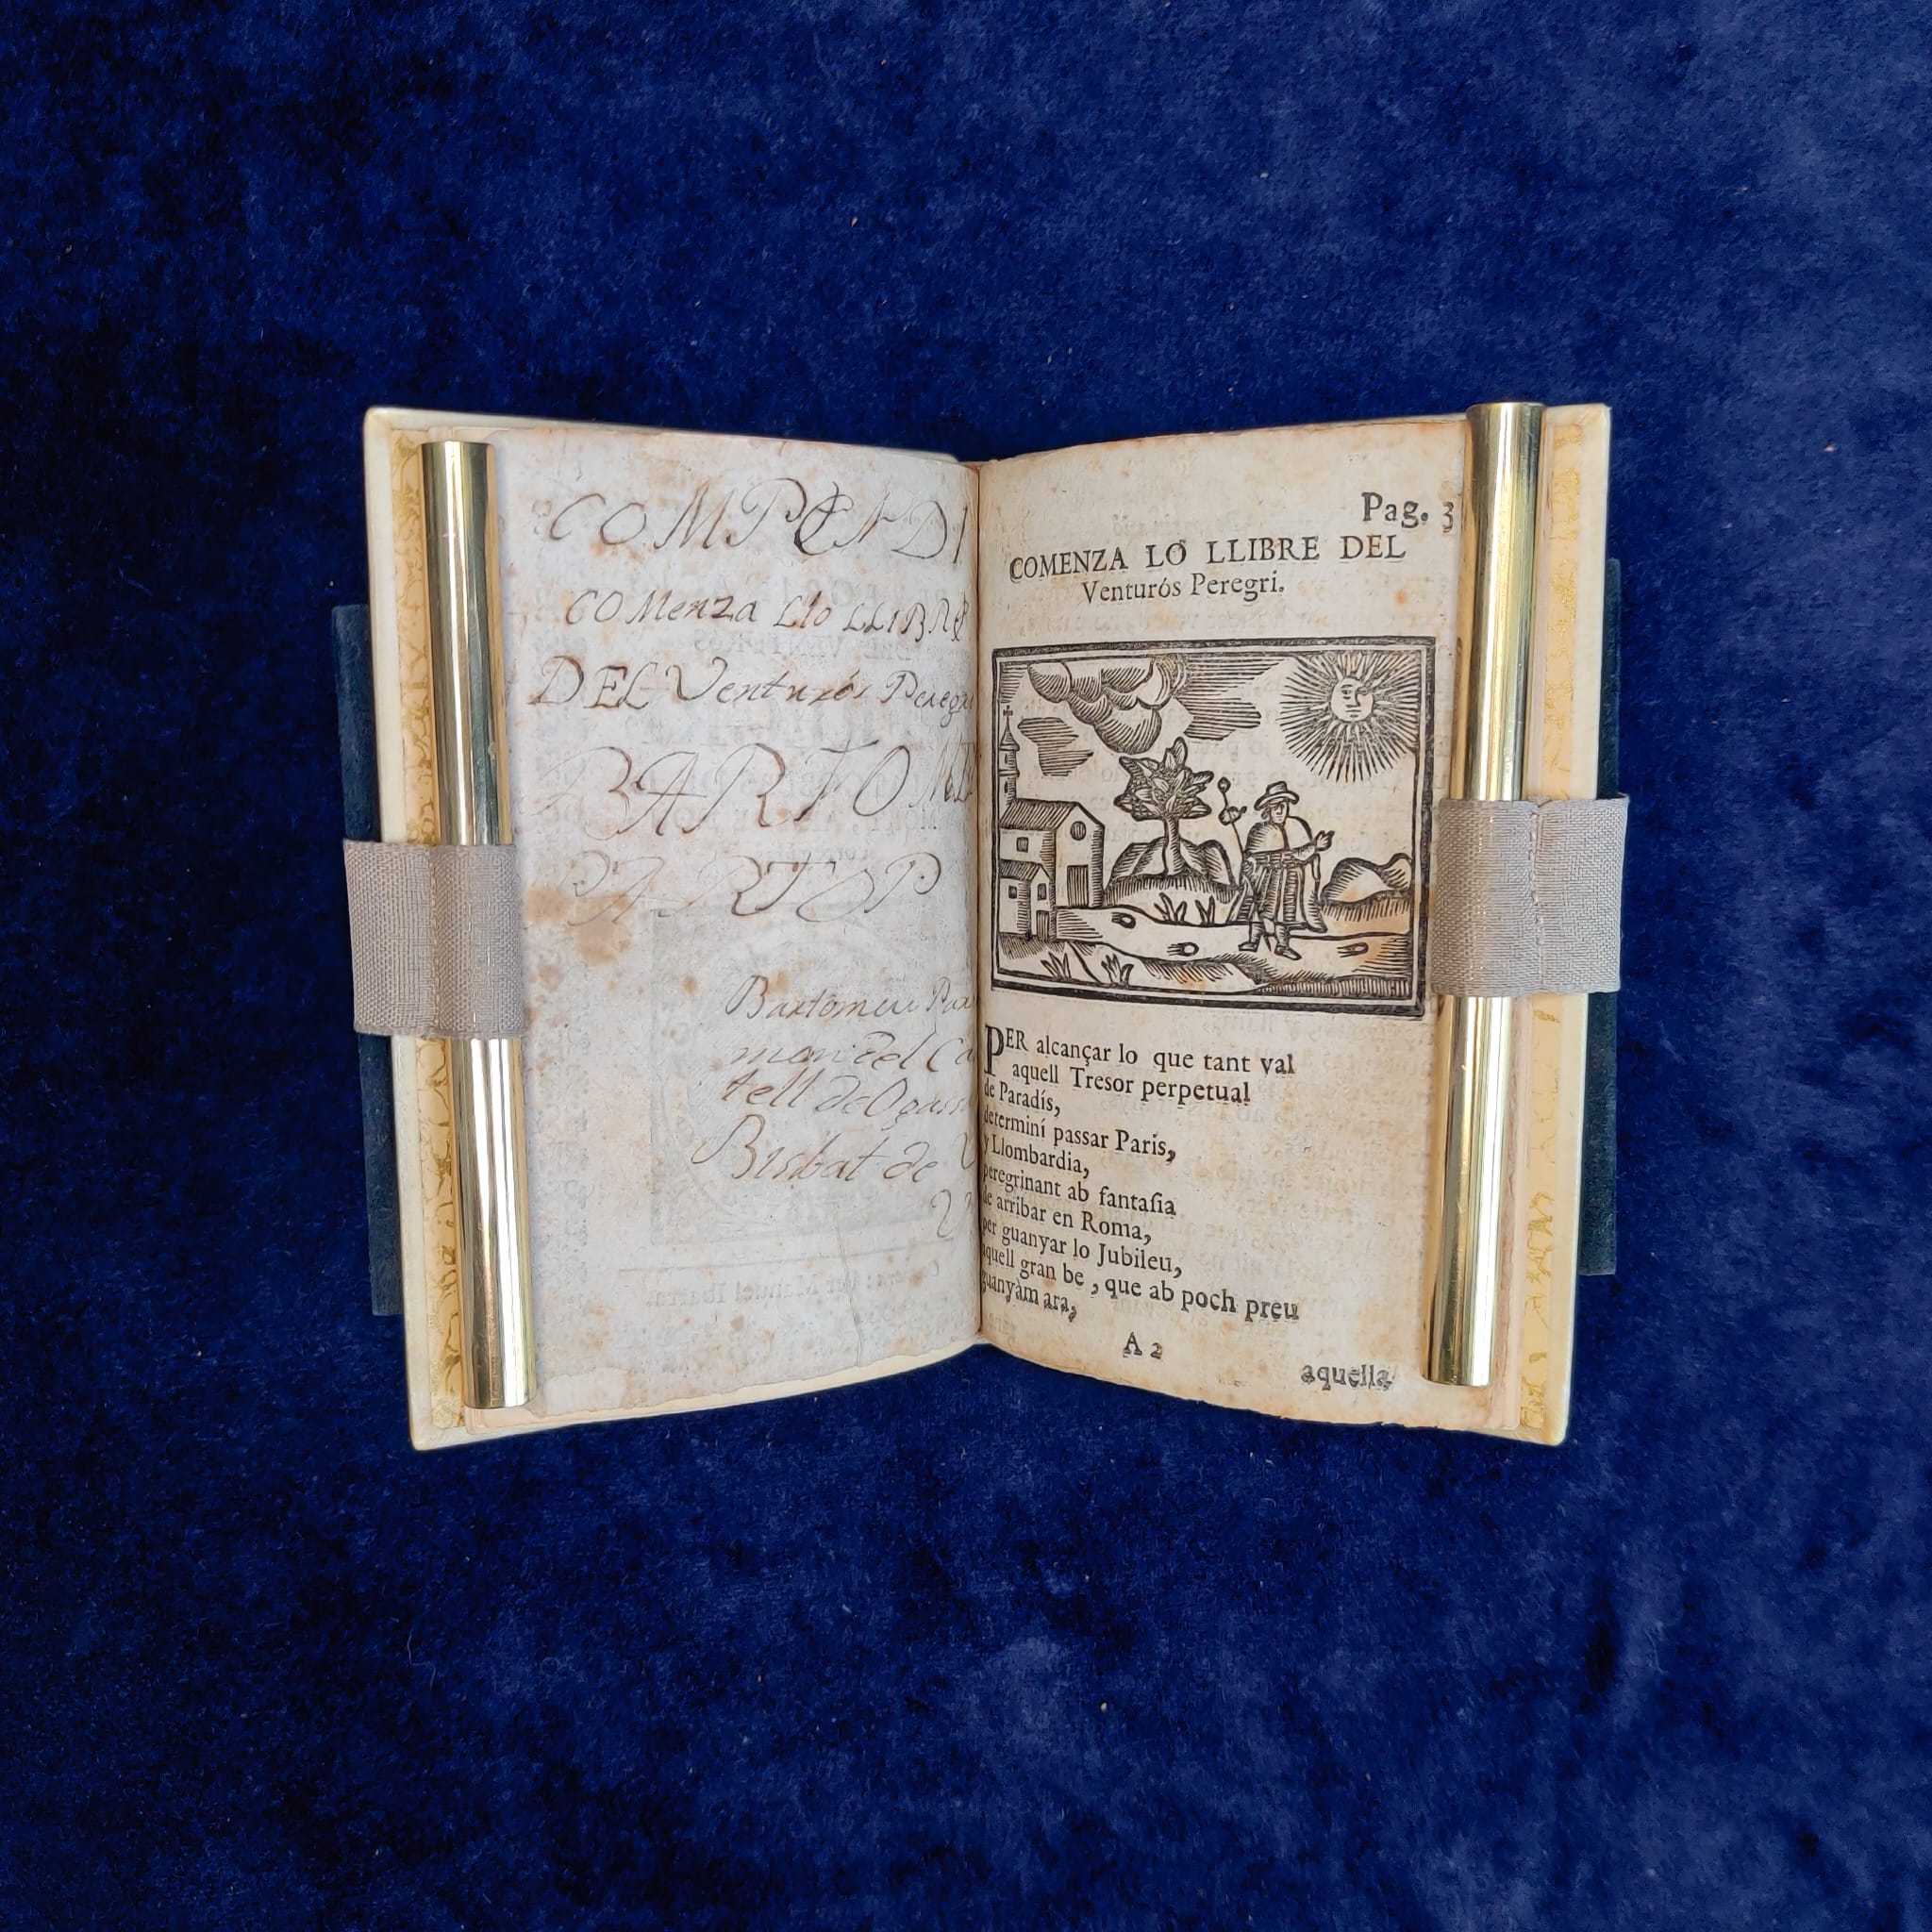 COMPENDI
COMenza Llo LLIBRE
DEL Venturós Peregri
BARTOME
PARTOP
Bartomeu Par
mon del Ca
tell de Ogass
Bisbat de V
Pag. 3
COMENZA LO LLIBRE DEL
Venturós Peregri.
PER alcançar lo que tant val
aquell Tresor perpetual
de Paradís,
determiní passar Paris,
y Llombardia,
peregrinant ab fantaſia
de arribar en Roma,
per guanyar lo Jubileu,
aquell gran be, que ab poch preu
guanyàm ara,
A 2
aquella